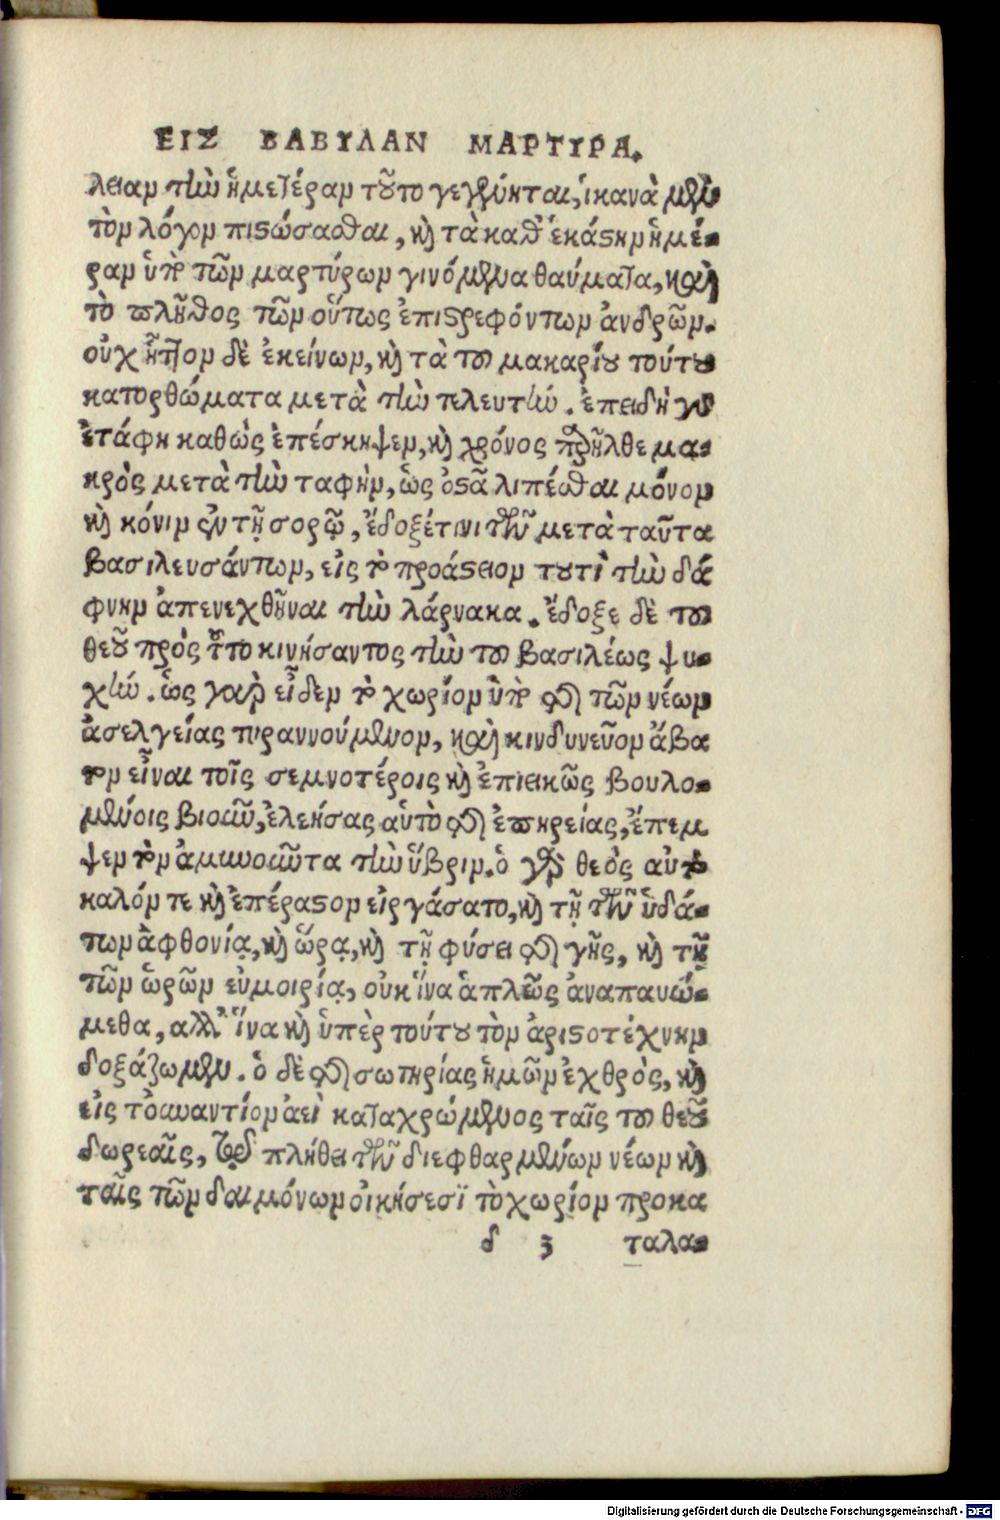 ΕΙΣ ΒΑΒΥΛΑΝ ΜΑΡΤΥΡΑ.
λειαν τὴν ἡμετέραν τοῦτο γεγένηται, ἱκανὰ μὲν
τὸν λόγον πιστώσασθαι, καὶ τὰ καθ' ἑκάστην ἡμέ-
ραν ὑπὸ τῶν μαρτύρων γινόμενα θαύματα, καὶ
τὸ πλῆθος τῶν οὕτως ἐπιστρεφόντων ἀνδρῶν.
οὐχ ἧττον δὲ ἐκείνων, καὶ τὰ τοῦ μακαρίου τούτου
κατορθώματα μετὰ τὴν τελευτήν. ἐπειδὴ γὰρ
ἐτάφη καθὼς ἐπέσκηψεν, καὶ χρόνος παρῆλθε μα-
κρὸς μετὰ τὴν ταφὴν, ὡς ὀστᾶ λιπέσθαι μόνον
καὶ κόνιν ἐν τῇ σορῷ, ἔδοξέ τινι τῶν μετὰ ταῦτα
βασιλευσάντων, εἰς τὸ προάστειον τουτὶ τὴν δά
φνην ἀπενεχθῆναι τὴν λάρνακα. ἔδοξε δὲ τοῦ
θεοῦ πρὸς τοῦτο κινήσαντος τὴν τοῦ βασιλέως ψυ-
χήν. ὡς γὰρ εἶδεν τὸ χωρίον ὑπὸ τῆς τῶν νέων
ἀσελγείας τυραννούμενον, καὶ κινδυνεῦον ἄβα
τον εἶναι τοῖς σεμνοτέροις καὶ ἐπιεικῶς βουλο-
μένοις βιοῦν, ἐλεήσας αὐτὸ τῆς ἐπηρείας, ἔπεμ
ψεν τὸν ἀμυνοῦντα τὴν ὕβριν. ὁ γὰρ θεὸς αὐτὸ
καλόν τε καὶ ἐπέραστον εἰργάσατο, καὶ τῇ τῶν ὑδά-
των ἀφθονίᾳ, καὶ ὥρᾳ, καὶ τῇ φύσει τῆς γῆς, καὶ τῇ
τῶν ὡρῶν εὐμοιρίᾳ, οὐκ ἵνα ἁπλῶς ἀναπαυώ-
μεθα, αλλ' ἵνα καὶ ὑπὲρ τούτου τὸν ἀριστοτέχνην
δοξάζωμεν. ὁ δὲ τῆς σωτηρίας ἡμῶν ἐχθρὸς, καὶ
εἰς τοὐναντίον ἀεὶ καταχρώμενος ταῖς τοῦ θεοῦ
δωρεαῖς, τῷ πλήθει τῶν διεφθαρμένων νέων καὶ
ταῖς τῶν δαιμόνων οἰκήσεσϊ τὸ χωρίον προκα
δ 3 ταλα-
Digitalisierung gefördert durch die Deutsche Forschungsgemeinschaft - DFG